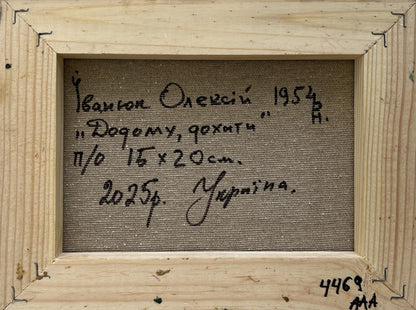 Іванюк Олексій 1954 р.н.
„Додому, до хати"
п/о 15 х 20 см.
2025р. Україна.
4469
ААА